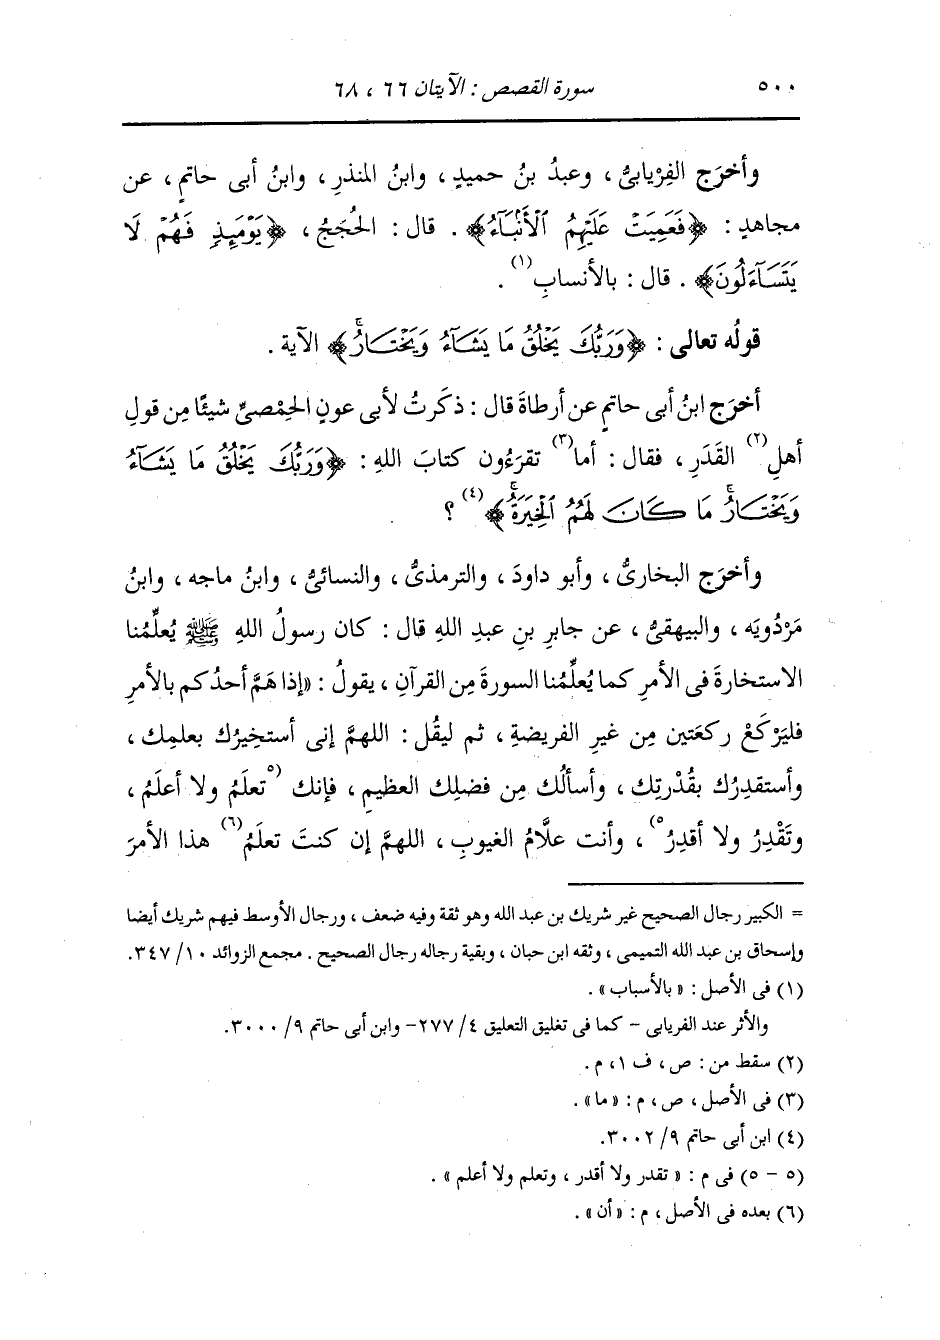 ٥٠٠ سورة القصص : الآيتان ٦٦ ، ٦٨
وأخرَج الفِرْيابىُّ ، وعبدُ بنُ حميدٍ ، وابنُ المنذرِ ، وابنُ أبى حاتمٍ ، عن
مجاهدٍ : ﴿فَعَمِيَتْ عَلَيْهِمُ ٱلْأَنۢبَآءُ﴾ . قال : الحُجَجُ ، ﴿يَوْمَئِذٍ فَهُمْ لَا
يَتَسَآءَلُونَ﴾ . قال : بالأنسابِ(١) .
قولُه تعالى : ﴿وَرَبُّكَ يَخْلُقُ مَا يَشَآءُ وَيَخْتَارُۗ﴾ الآية .
أخرَج ابنُ أبى حاتمٍ عن أرطاةَ قال : ذكَرتُ لأبى عونٍ الحِمْصىِّ شيئًا مِن قولِ
أهلِ(٢) القَدَرِ ، فقال : أما(٣) تقرَءُون كتابَ اللهِ : ﴿وَرَبُّكَ يَخْلُقُ مَا يَشَآءُ
وَيَخْتَارُۗ مَا كَانَ لَهُمُ ٱلْخِيَرَةُۚ﴾(٤) ؟
وأخرَج البخارىُّ ، وأبو داودَ ، والترمذىُّ ، والنسائىُّ ، وابنُ ماجه ، وابنُ
مَرْدُويَه ، والبيهقىُّ ، عن جابرِ بنِ عبدِ اللهِ قال : كان رسولُ اللهِ ﷺ يُعلِّمُنا
الاستخارةَ فى الأمرِ كما يُعلِّمُنا السورةَ مِن القرآنِ ، يقولُ : «إذا هَمَّ أحدُكم بالأمرِ
فليَركَعْ ركعَتين مِن غيرِ الفريضةِ ، ثم ليقُل : اللهمَّ إنى أستخِيرُك بعلمِك ،
وأستقدِرُك بقُدْرتِك ، وأسألُك مِن فضلِك العظيمِ ، فإنك (٥تعلَمُ ولا أعلَمُ ،
وتَقْدِرُ ولا أقدِرُ٥) ، وأنت علَّامُ الغيوبِ ، اللهمَّ إن كنتَ تعلَمُ(٦) هذا الأمرَ
= الكبير رجال الصحيح غير شريك بن عبد الله وهو ثقة وفيه ضعف ، ورجال الأوسط فيهم شريك أيضا
وإسحاق بن عبد الله التميمى ، وثقه ابن حبان ، وبقية رجاله رجال الصحيح . مجمع الزوائد ١٠/ ٣٤٧.
(١) فى الأصل : « بالأسباب » .
والأثر عند الفريابى - كما فى تغليق التعليق ٤/ ٢٧٧- وابن أبى حاتم ٩/ ٣٠٠٠.
(٢) سقط من : ص ، ف ١ ، م .
(٣) فى الأصل ، ص ، م : « ما » .
(٤) ابن أبى حاتم ٩/ ٣٠٠٢.
(٥ - ٥) فى م : « تقدر ولا أقدر ، وتعلم ولا أعلم » .
(٦) بعده فى الأصل ، م : « أن » .